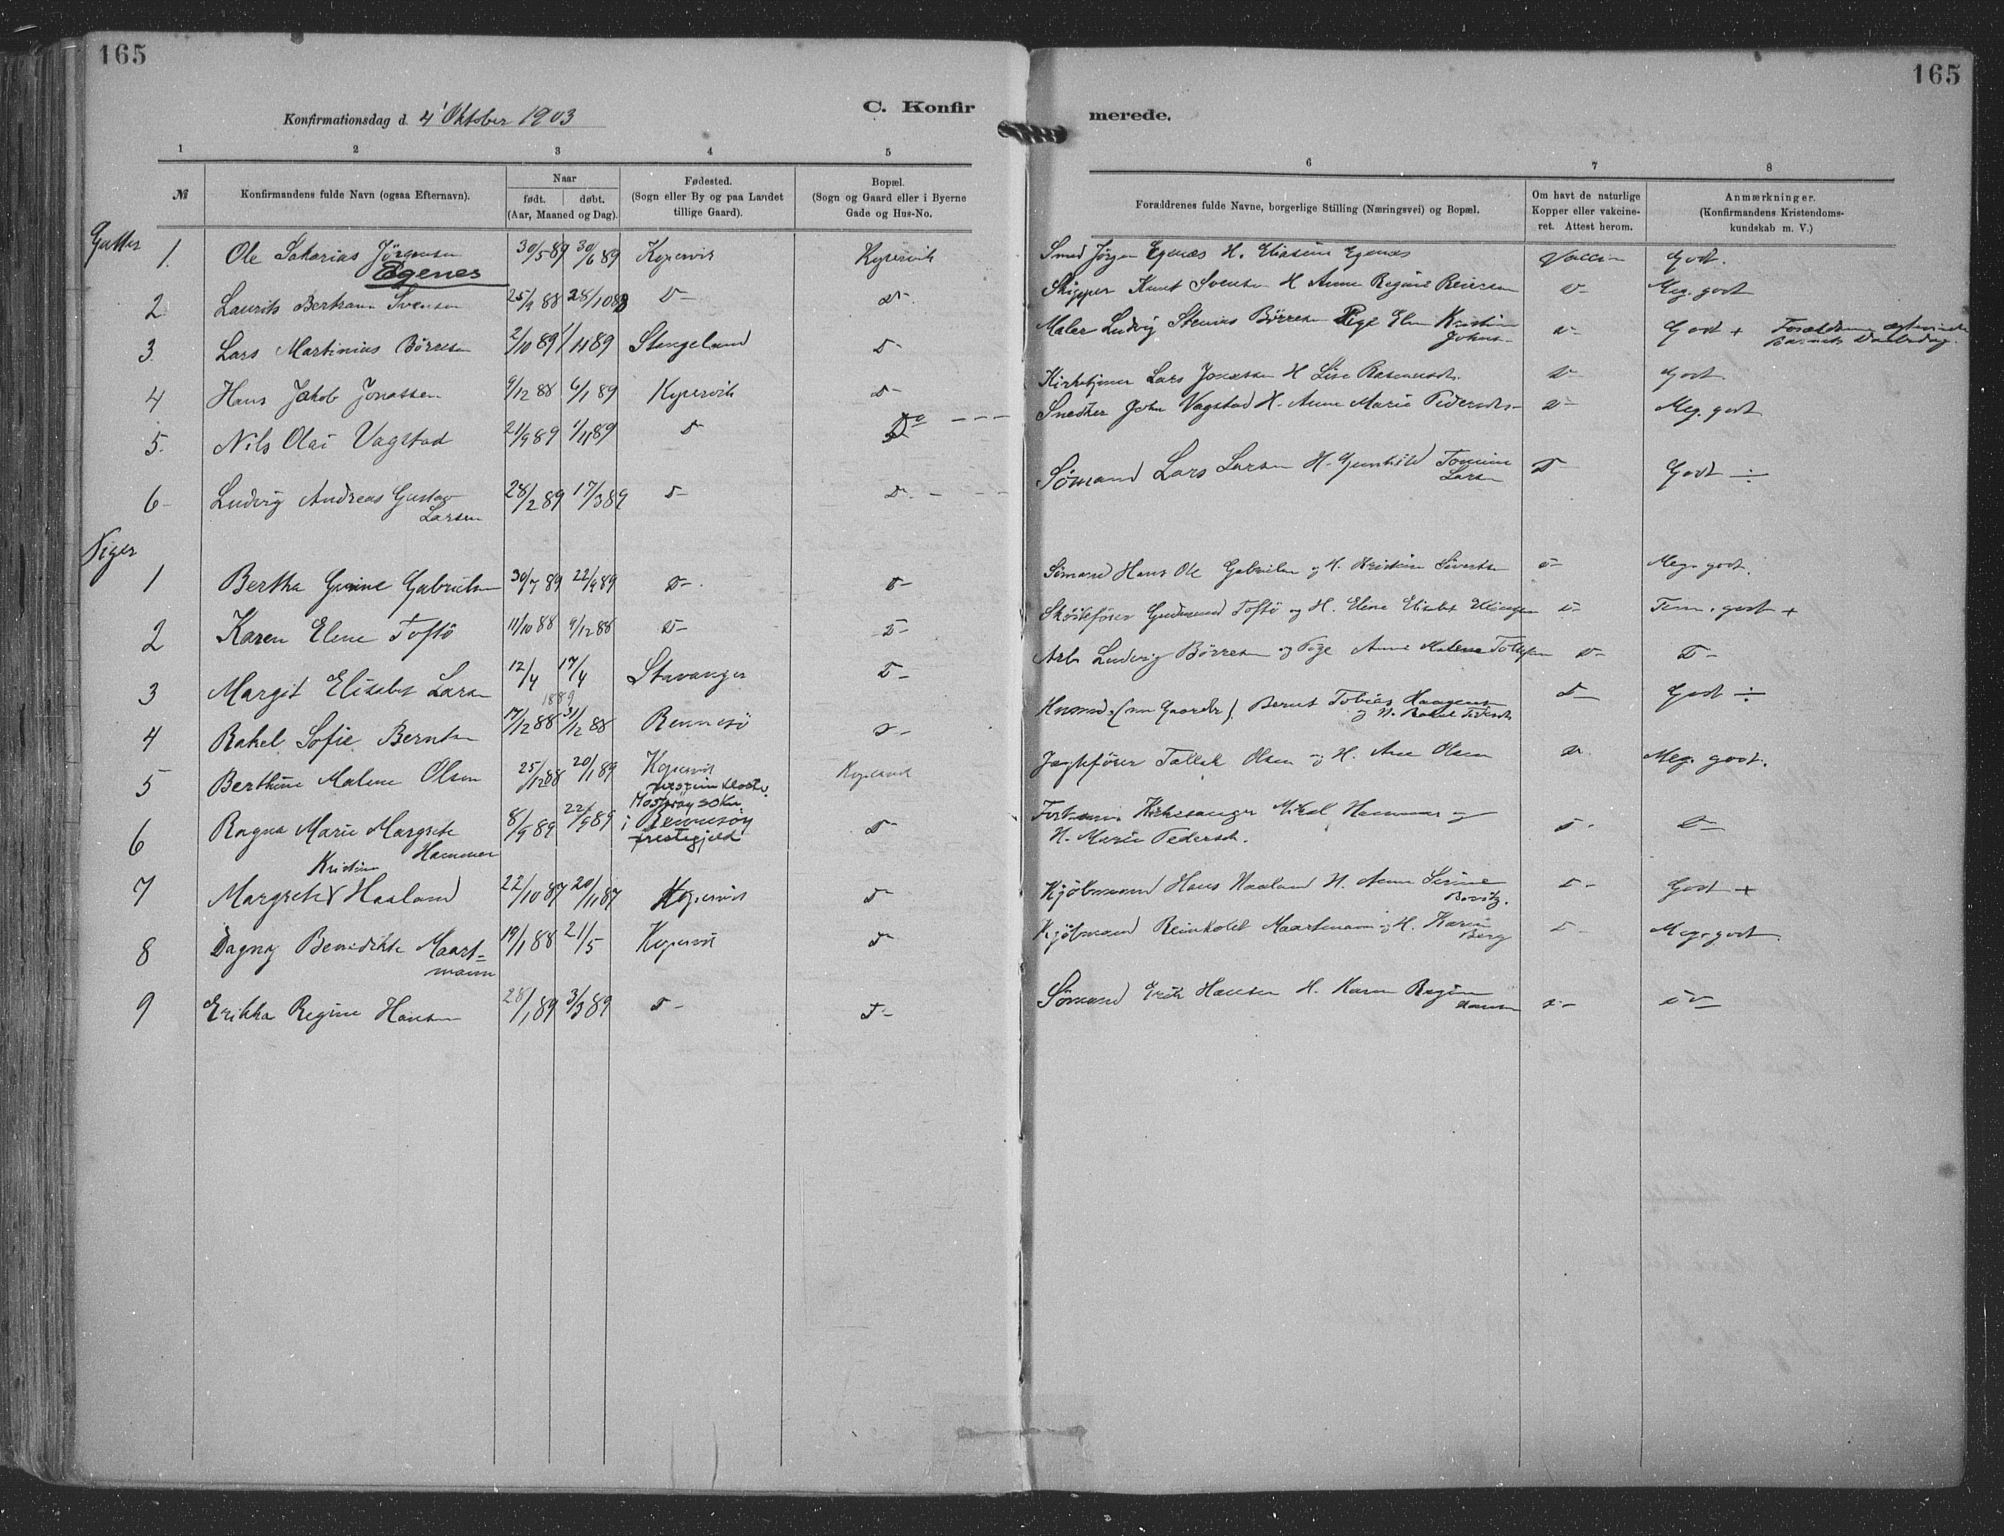 165
165
Konfirmationsdag d. 4' Oktober 1903
C. Konfirmerede.
1 2 3 4 5 6 7 8
№
Konfirmandens fulde Navn (ogsaa Efternavn).
Naar
født. døbt.
(Aar, Maaned og Dag).
Fødested.
(Sogn eller By og paa Landet
tillige Gaard).
Bopæl.
(Sogn og Gaard eller i Byerne
Gade og Hus-No.
Forældrenes fulde Navne, borgerlige Stilling (Næringsvei) og Bopæl.
Om havt de naturlige
Kopper eller vakcine-
ret. Attest herom.
Anmærkninger.
(Konfirmandens Kristendoms-
kundskab m. V.)
Gutter
1. Ole Sakarias Jörgensen 30/5 89 30/6 89 Kopervik Kopervik Smed Jörgen Egenæs H. Eliasine Egenæs Godt.
Egenes
2 Laurits Bertram Svensen 25/9 88 28/10 88 D- D- Skipper Knut Svensen H Anne Regine Reiersen D- Meg. godt
3. Lars Martinius Börresen 2/10 89 Stangeland D- Maler Ludvig Börresen Pige Elen Kristine D- Godt +
Johns-
4 Hans Jakob Jonassen 9/12 88 6/1 89 Kopervik D- Kirketjener Lars Jonassen H Lise Rasmusdt. D- Godt
5. Nils Olai Vagstad 21/9 89 1/11 89 D- Do - - - Snedker John Vagstad H. Anne Marie Pedersdt- D- Meg. godt
6- Ludvig Andreas Gustav 28/2 89 17/3 89 D- D. - - Sømand Lars Larsen H. Gunhild Tomine D- Godt ÷
Larsen Larsen
Piger
1 Bertha Gurine Gabrielsen 30/7 89 22/9 89 D- D- Sømand Hans Ole Gabrielsen og H. Kristine Sivertsen D- Meg. godt.
2 Karen Elene Toftö 11/10 88 9/12 88 D- D- Gudmund Toftö og H. Elene Elisabet D- Tem. godt +
3 Margit Elisabet Larsen 12/4 17/4 Stavanger D- Arb. Ludvig Börresen og Pige Anne Malene Tollefsen D- D-
1889
4 Rakel Sofie Berntsen 17/12 88 31/12 88 Rennesö D- Husmd. (nu Gaardbr). Bernt Tobias Haagensen D- Godt ÷
og H. Rakel
5 Berthine Malene Olsen 25/12 88 20/1 89 Kopervik Kopervik Jagtfører Tallak Olsen og H. Ane Olsen D- Meg. godt.
6 Ragna Marie Margrete 8/9 89 22/9 89 Mosterøy sokn D- Kirkesanger Mikal Hammer og D- D-
Hammer i Rennesøy
prestegjeld H. Marie Pedersdt.
Kristine
7 Margrete Haaland 22/10 87 20/11 87 Kopervik D- Kjöbmand Hans Haaland H. Anne Serine D- Godt +
8 Dagny Benedikte Maart= 19/1 88 21/5 Kopervik D- Kjöbmand Reinholdt Maartmann og H. Karen D- Meg. godt.
mann Berg
9 Erikka Regine Hansen 28/1 89 3/3 89 D- D- Sømand Erik Hansen H. Karen Regine D- D-
Hansen